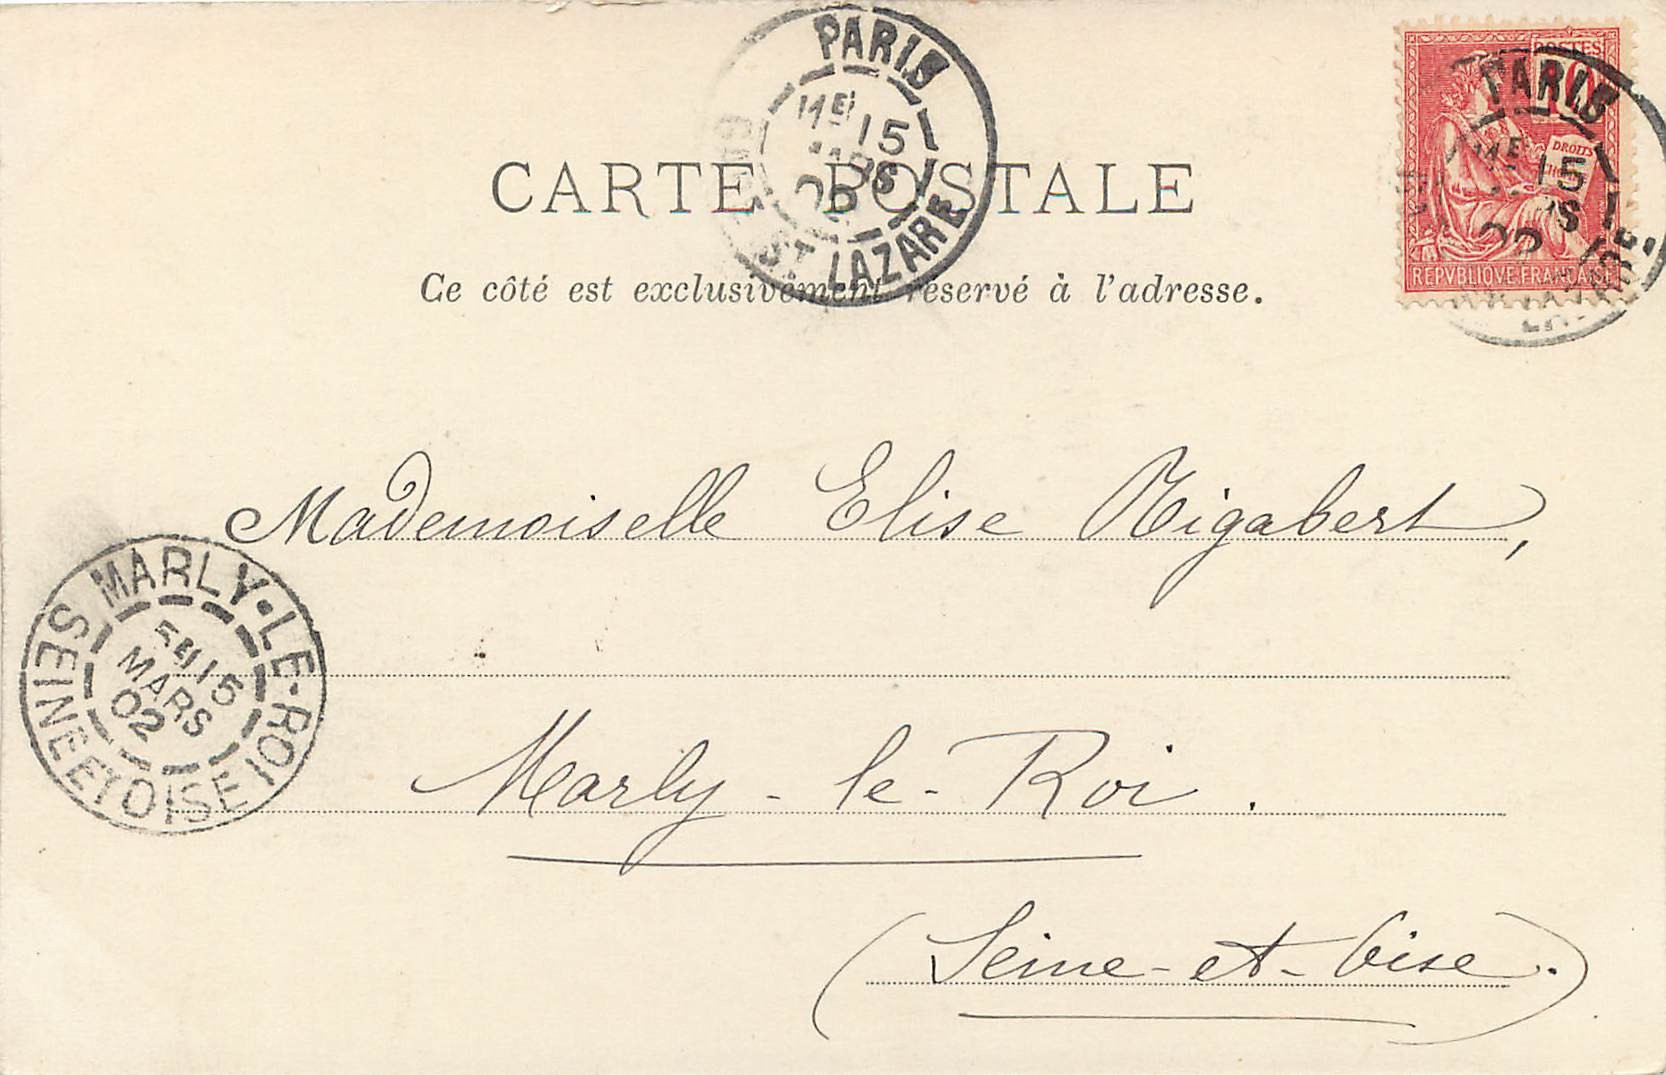 PARIS
ME 15
MARS
02
GARE ST LAZARE
POSTES
10
DROITS
DE
L'HOMME
REPVBLIQVE FRANÇAISE
PARIS
ME 15
02
CARTE POSTALE
Ce côté est exclusivement réservé à l'adresse.
Mademoiselle Elise Rigabert,
MARLY-LE-ROI
15
MARS
02
SEINE ET OISE
Marly-le-Roi.
(Seine-et-Oise.)